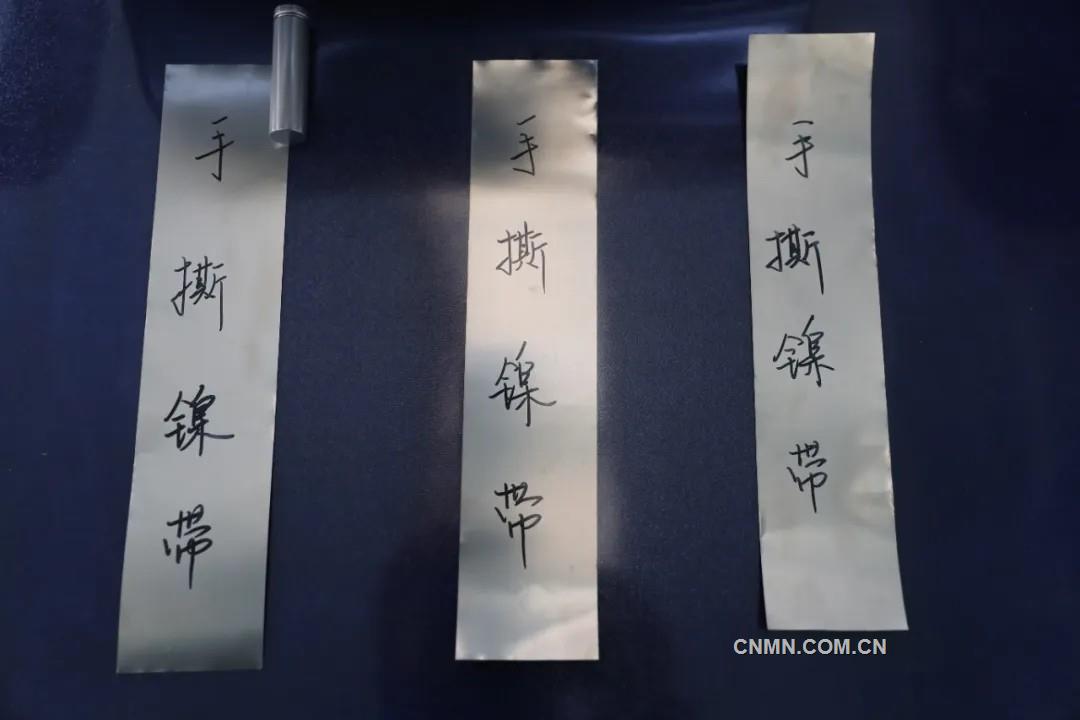 手撕镍带
手撕镍带
手撕镍带
CNMN.COM.CN